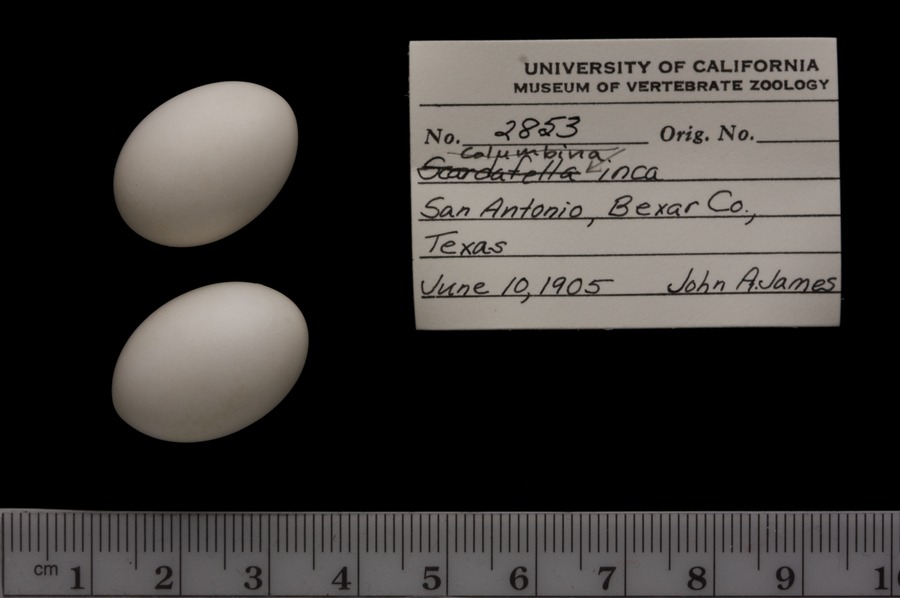 UNIVERSITY OF CALIFORNIA
MUSEUM OF VERTEBRATE ZOOLOGY
No. 2853 Orig. No.
Columbina
Scardafella inca
San Antonio, Bexar Co.,
Texas
June 10, 1905 John A. James
cm 1 2 3 4 5 6 7 8 9 1